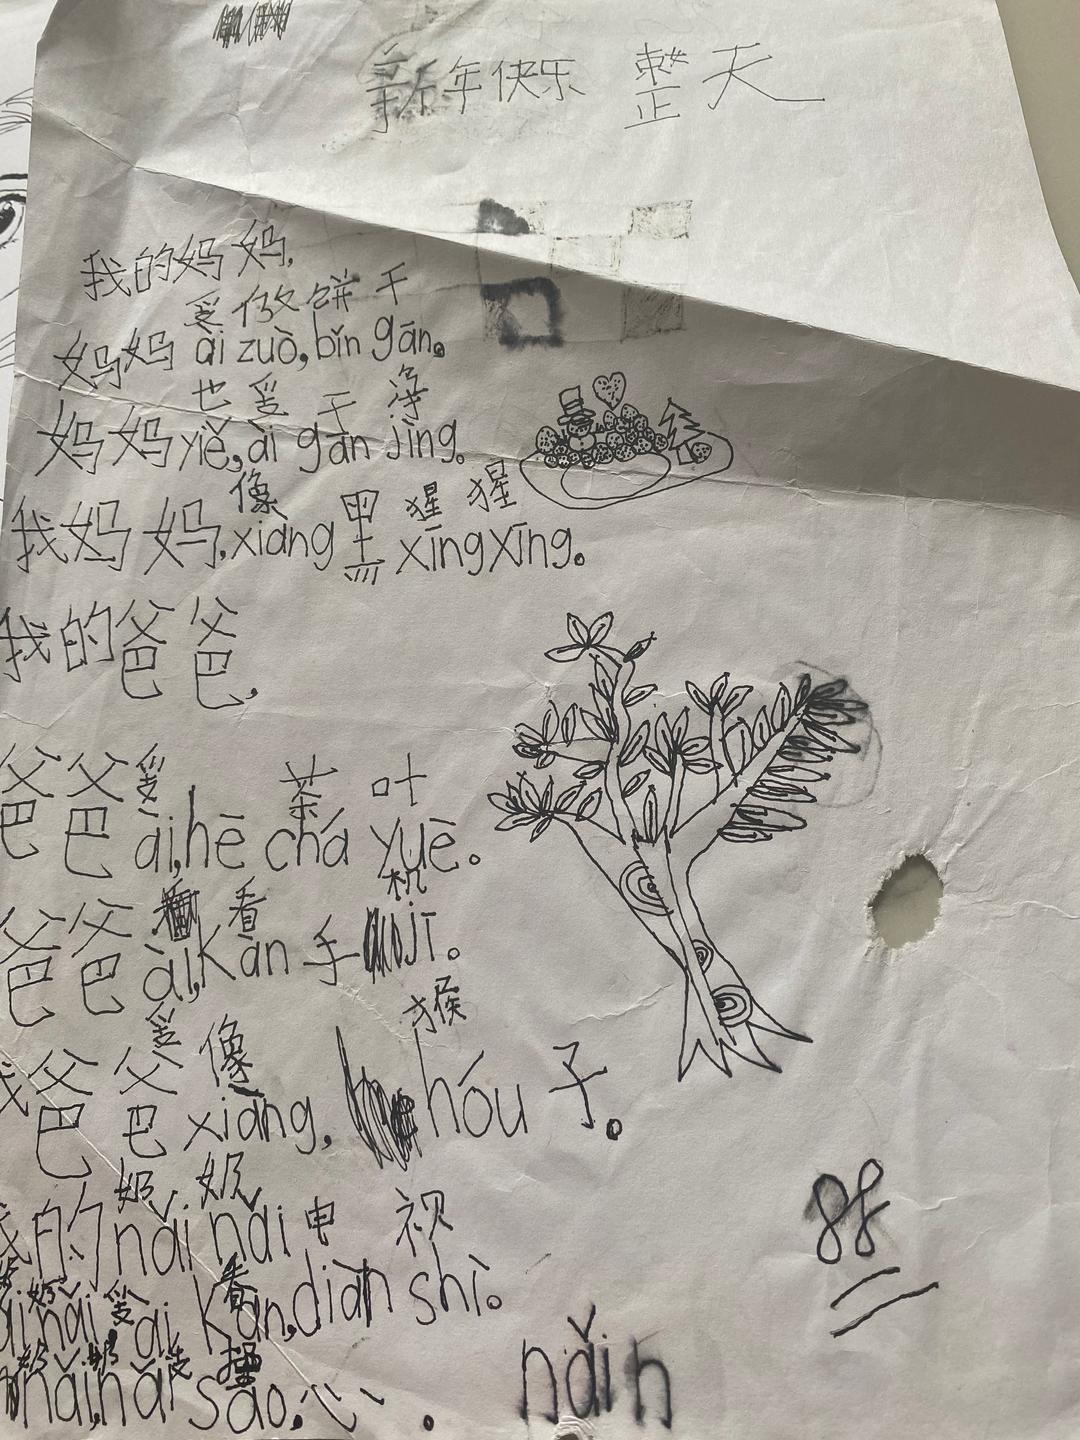 新年快乐 整天
我的妈妈,
爱 做 饼 干
妈妈 ài zuò, bǐn gān。
也 爱 干 净
妈妈 yiě, ài gān jìng。
像 猩 猩
我妈妈, xiang 黑 xīng xīng。
我的爸爸,
爱 茶 叶
爸爸 ài, hē chá yuè。
机
看
爸爸 ài, Kàn 手 jī。
爱 像 猴
我爸爸 xiàng, hóu 子。
奶 奶
我的 nǎi nǎi 电 视
奶 爱 看
nǎi ài Kàn, diàn shì。
操
nǎi, nǎi sāo, 心。
88
nǎi n